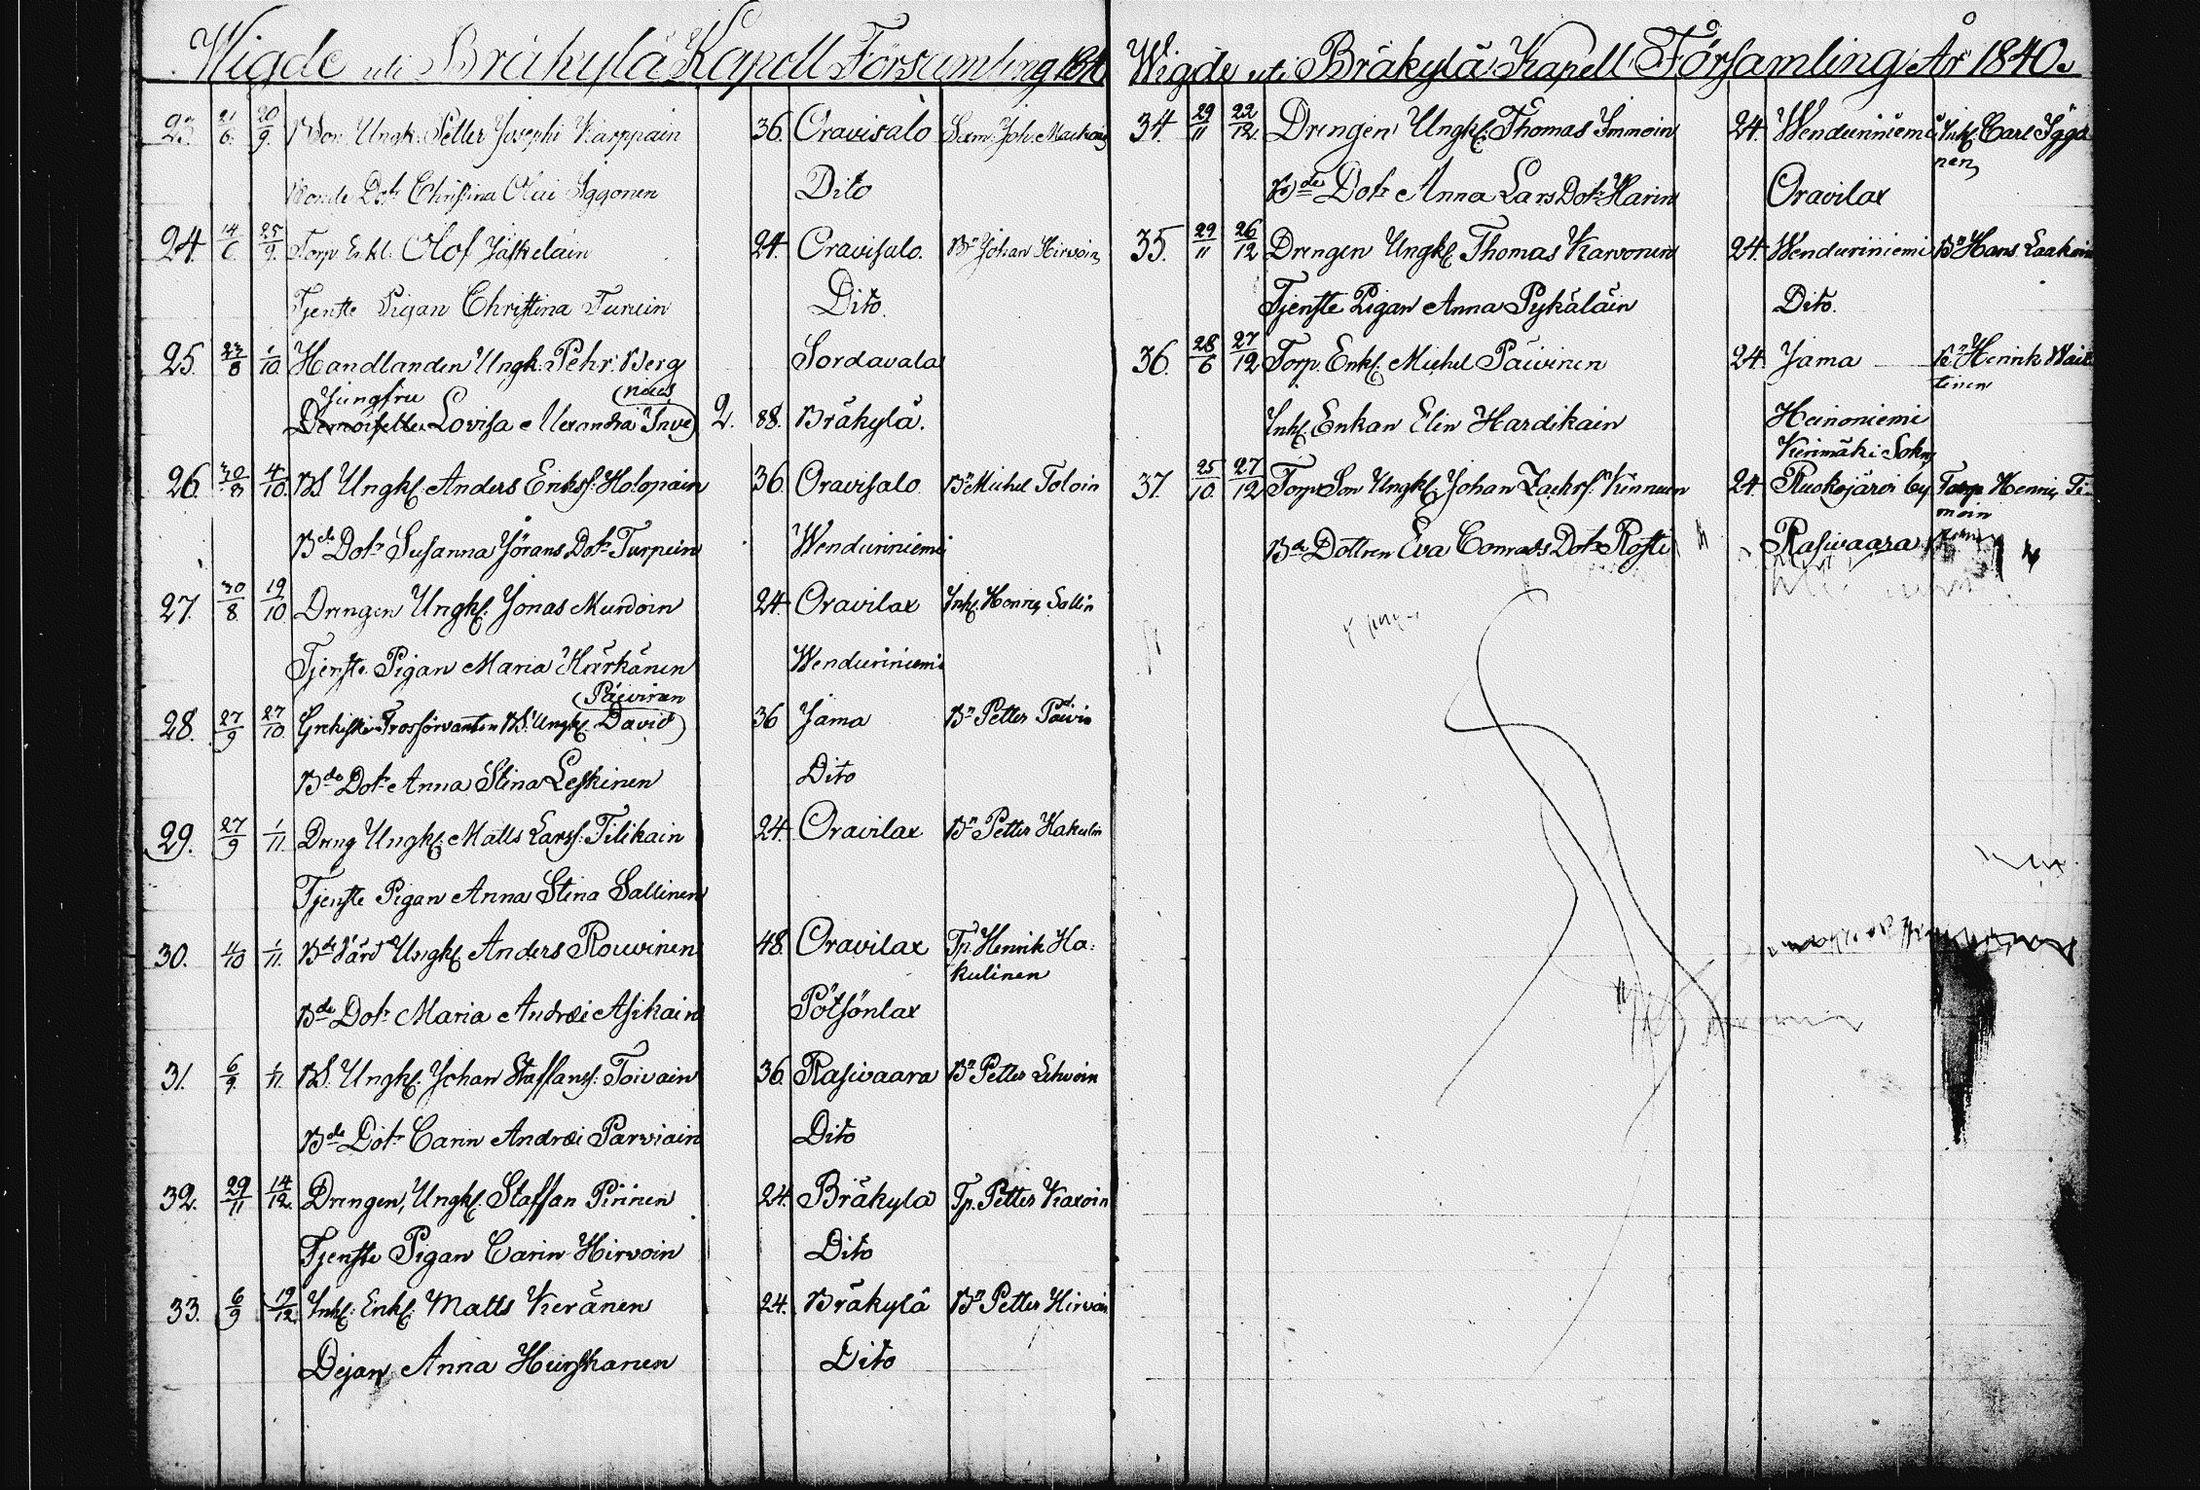 Wigde uti Bräkylä Kapell Församling 1840
23. 21/6. 20/9. Bson Ungk. Petter Josephi Karppain 36. Oravisalo
Bonde Dotr Christina Olai Iggonen Dito
24. 14/6 25/9. Torp. Enkl. Olof Jäskeläin 24. Oravisalo. Bn Johan Hirvoin
Tjenste Pigan Christina Turuin Dito.
25. 23/8 1/10. Handlanden Ungk. Pehr Berg Sordavala
Jungfru (naes
Demoiselle Lovisa Alexandra Inve) 2. 88. Bräkylä.
26. 30/8 4/10. BS. Ungkl. Anders Erikss. Holopain 36. Oravisalo Bn Michel Toloin
Bde Dotr Susanna Jörans Dotr Turpein Wenduriniemi
27. 30/8. 19/10. Drengen Ungkl. Jonas Murdoin 24. Oravilax Inh. Henric Sallin
Tjenste Pigan Maria Härkänen Wenduriniemi
(Päiviren
28. 27/9 27/10. Grekiske Trosförvanten BS. Ungkl. David) 36 Jama Bn Petter Päivin
Bde Dotr Anna Stina Leskinen Dito
29. 27/9 1/11. Dreng Ungkl. Matts Larss. Tilikain 24. Oravilax Bn Petter Hakulin
Tjenste Pigan Anna Stina Sallinen
30. 4/10 1/11. Bde Ungkl. Anders Rouvinen 48. Oravilax Tp. Henrik Ha:
kulinen
Bde Dotr Maria Andræi Asikain Pötsönlax
31. 6/9. 1/11. BS. Ungkl. Johan Staffanss. Toivain 36. Rasivaara Bn Petter Lehvoin
Bde Dotr Carin Andræi Parviain Dito
32. 29/11 14/12. Drengen, Ungkl. Staffan Pirinen 24. Bräkylä Tp. Petter Karoin
Tjenste Pigan Carin Hirvoin Dito
33. 6/9 19/12. Inh. Enkl. Matts Keränen 24. Bräkylä Bn Petter Hirvoin
Dejan Anna Hurskanen Dito
Wigde uti Bräkylä Kapell Församling År 1840.
34. 29/11 22/12. Drengen Ungkl. Thomas Immoin 24. Wenduriniemi Inh. Carl Iggo
nen
Bde Dotr Anna Lars Dotr Harin Oravilax
35. 29/11 26/12 Drengen Ungkl. Thomas Karvonen 24. Wenduriniemi Bn Hans Laakoin
Tjenste Pigan Anna Pykäläin Dito.
36. 28/6 27/12 Torp. Enkl. Michel Päivinen 24. Jama Bn Henrik
tinen
Inh. Enkan Elin Hardikain Heinoniemi
Kerimäki Sokn
37. 25/10 27/12 Torp. Son Ungkl. Johan Zachrs. Kinnuen 24. Ruokojärvi by Torp Henric Ti
moin
Bde Dottren Eva Conrads Dotr Rosti Rasivaara